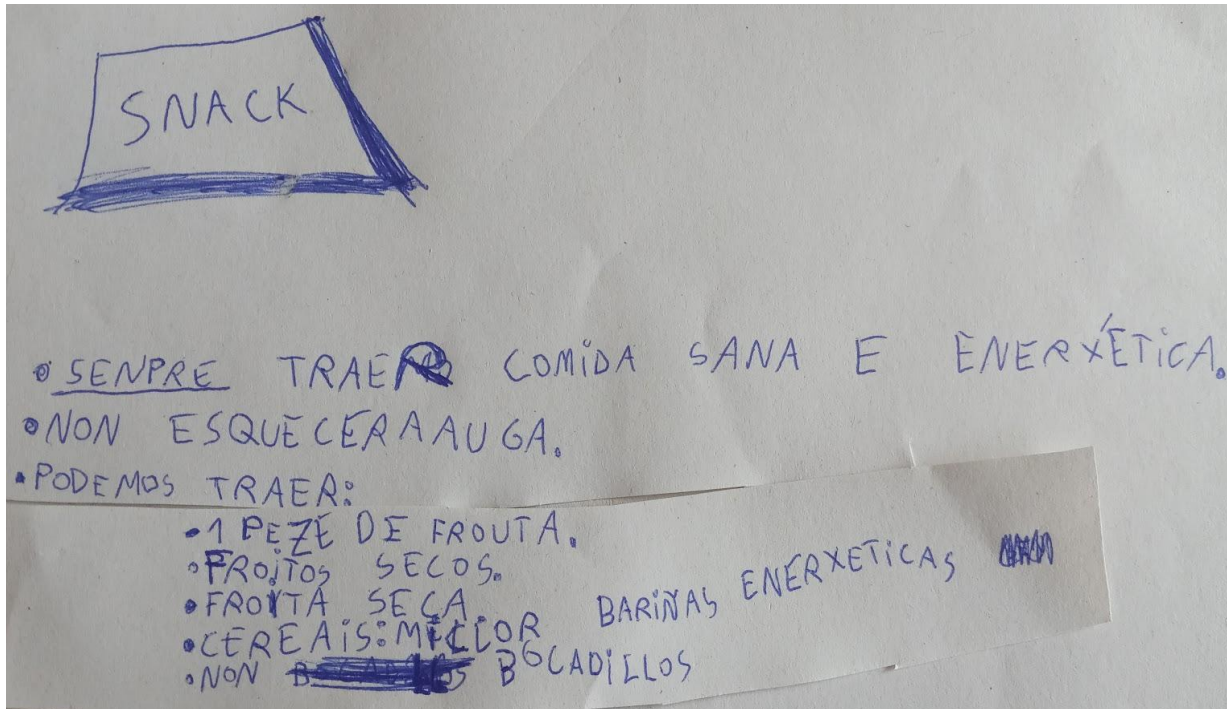 SNACK
• SENPRE TRAER COMIDA SANA E ENERXÉTICA.
• NON ESQUECER A AUGA.
• PODEMOS TRAER:
• 1 PEZE DE FROUTA.
• FROITOS SECOS.
• FROITA SECA.
• CEREAIS: MILLOR BARIÑAS ENERXETICAS
• NON BOCADILLOS